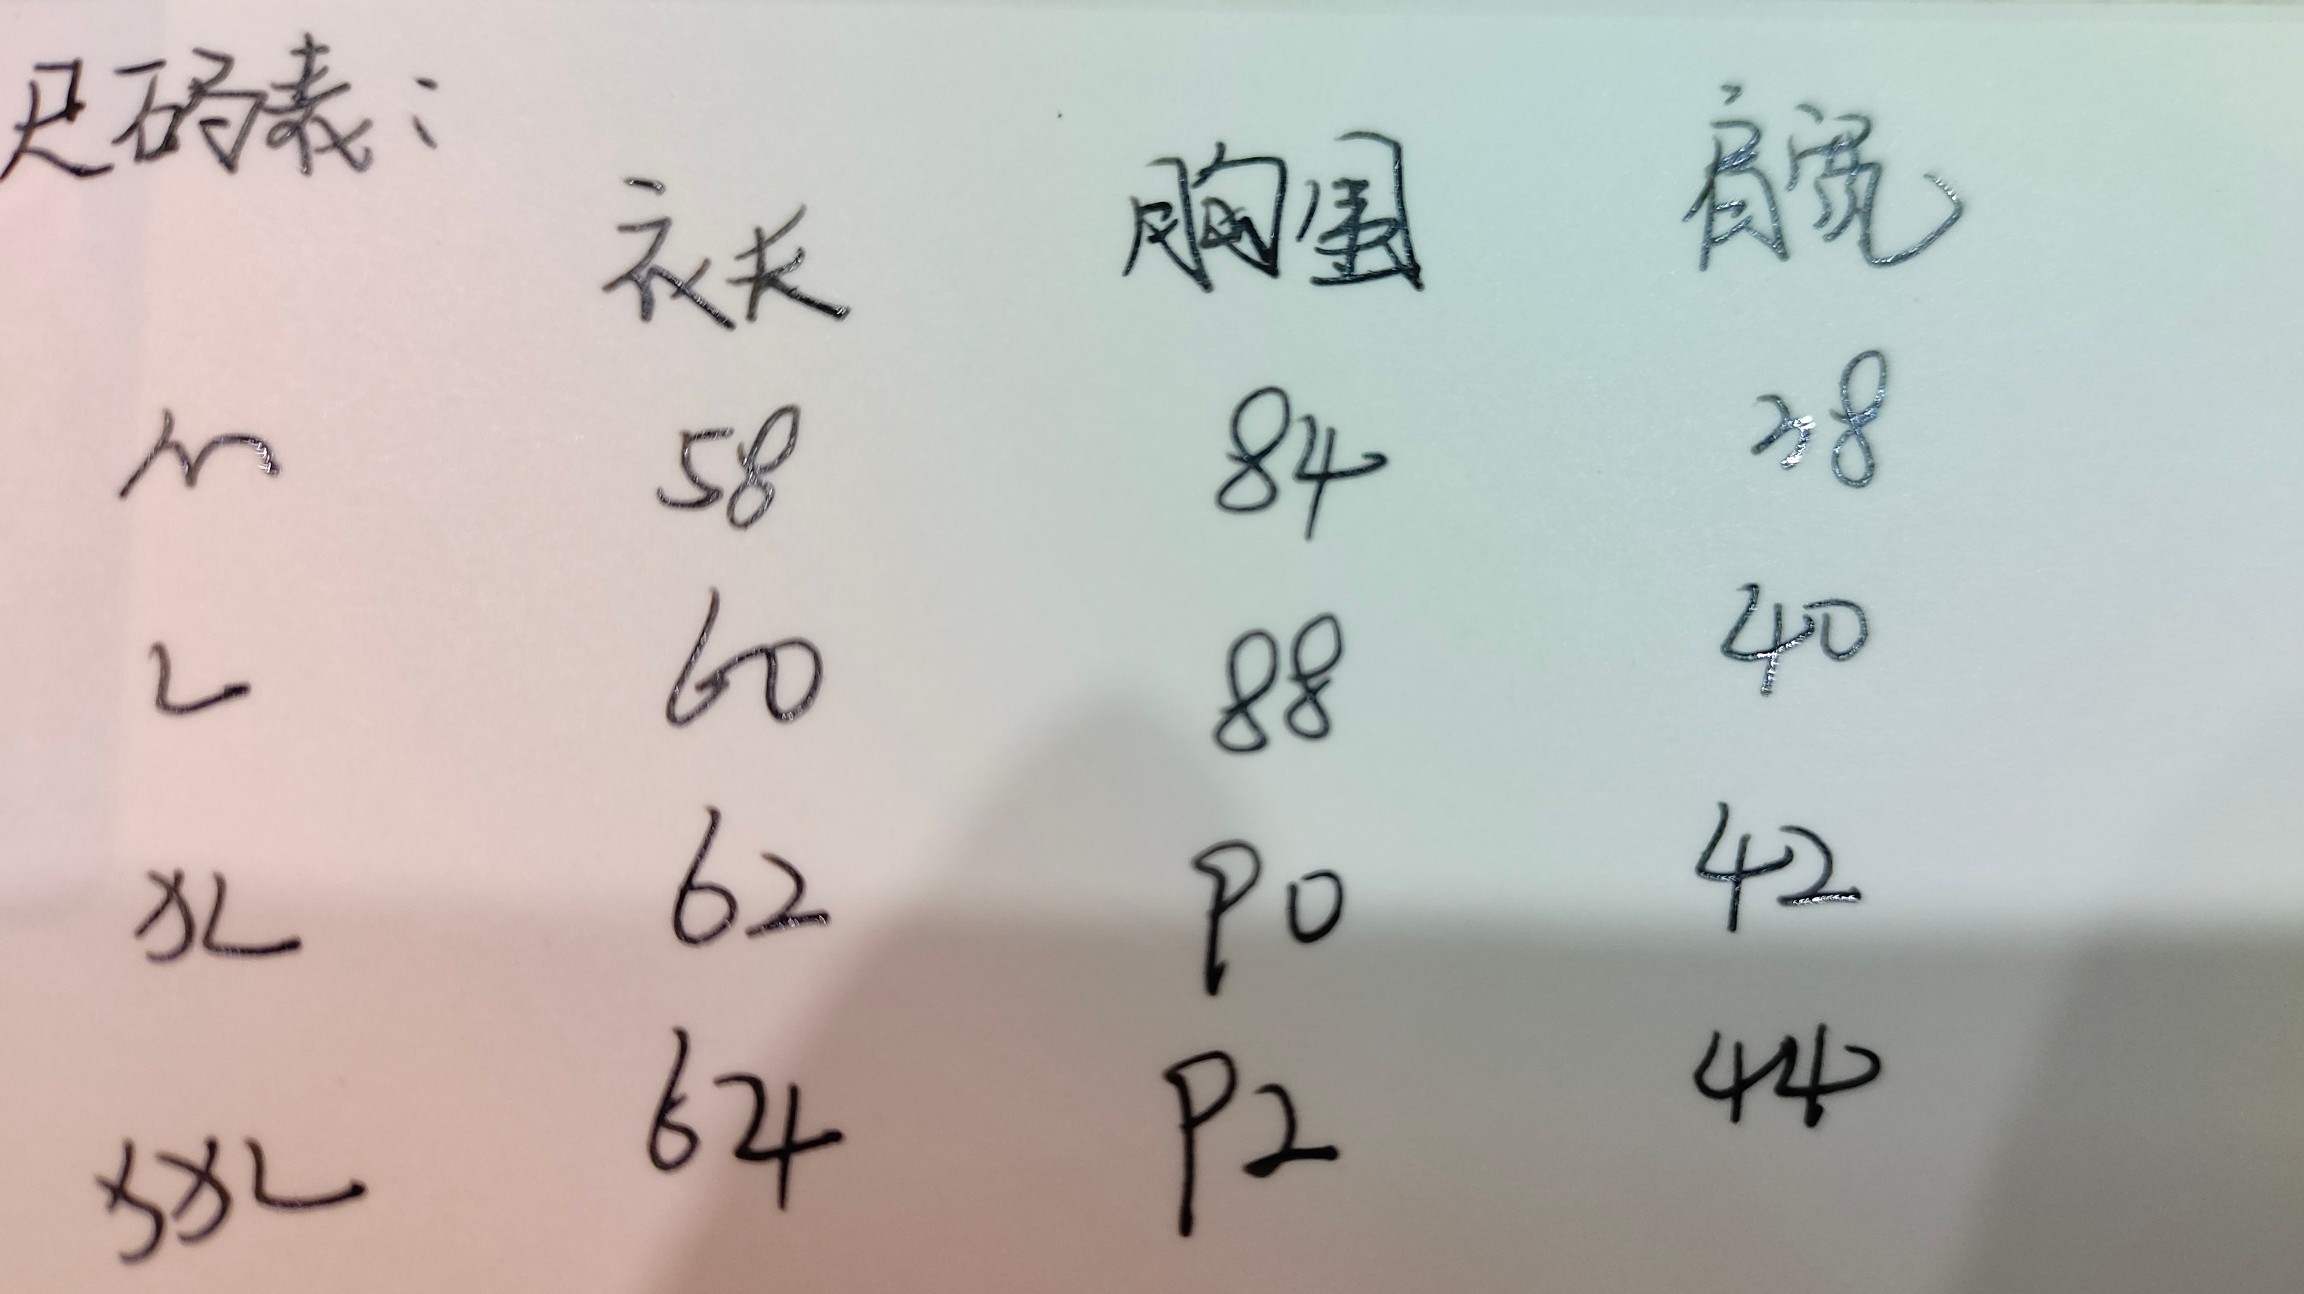 尺码表：
衣长 胸围 肩宽
M 58 84 38
L 60 88 40
XL 62 90 42
XXL 64 92 44